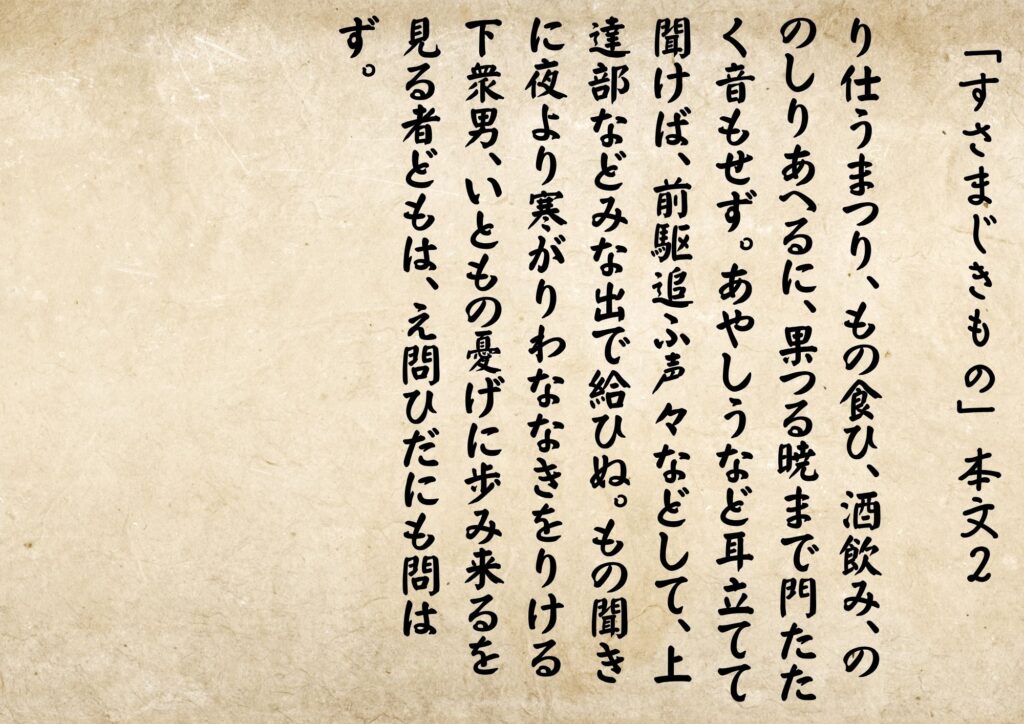 「すさまじきもの」本文2
り仕うまつり、もの食ひ、酒飲み、の
のしりあへるに、果つる暁まで門たた
く音もせず。あやしうなど耳立てて
聞けば、前駆追ふ声々などして、上
達部などみな出で給ひぬ。もの聞き
に夜より寒がりわななきをりける
下衆男、いともの憂げに歩み来るを
見る者どもは、え問ひだにも問は
ず。